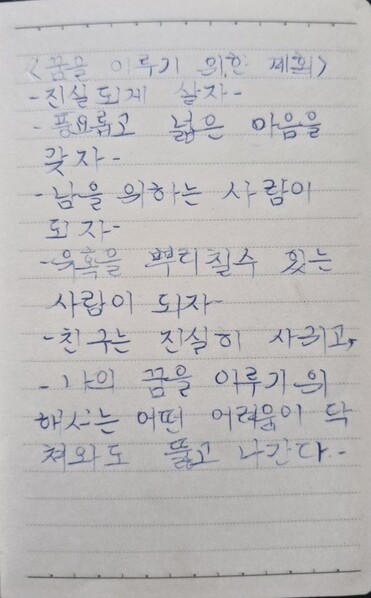 <꿈을 이루기 위한 계획>
-진실되게 살자-
-풍요롭고 넓은 마음을
갖자-
-남을 위하는 사람이
되자-
-유혹을 뿌리칠수 있는
사람이 되자-
-친구는 진실히 사귀고,
-나의 꿈을 이루기 위
해서는 어떤 어려움이 닥
쳐와도 뚫고 나간다.-